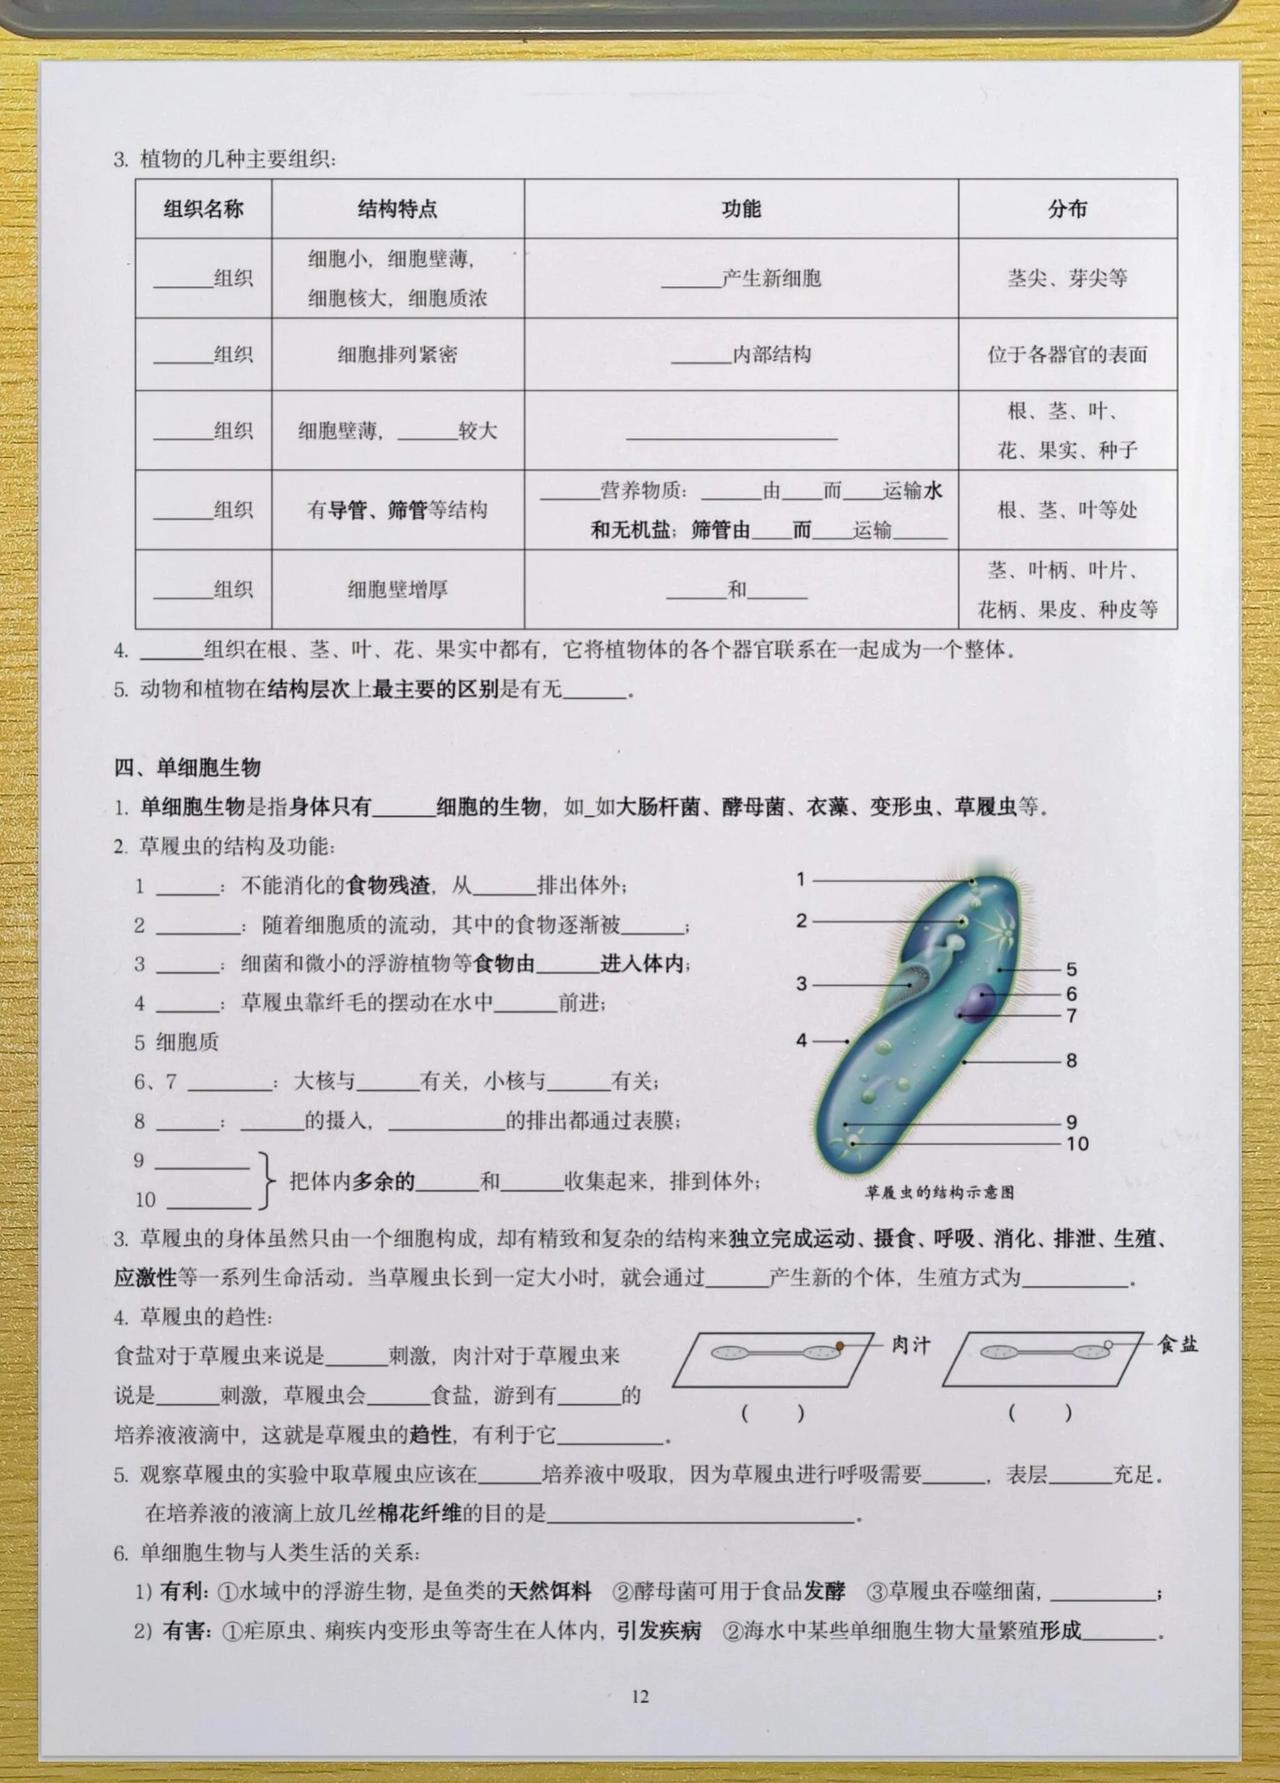 3. 植物的几种主要组织:
组织名称 结构特点 功能 分布
______组织 细胞小, 细胞壁薄, 细胞核大, 细胞质浓 ______产生新细胞 茎尖、芽尖等
______组织 细胞排列紧密 ______内部结构 位于各器官的表面
______组织 细胞壁薄, ______较大 ____________________ 根、茎、叶、花、果实、种子
______组织 有导管、筛管等结构 ______营养物质: ______由____而____运输水和无机盐; 筛管由____而____运输______ 根、茎、叶等处
______组织 细胞壁增厚 ______和______ 茎、叶柄、叶片、花柄、果皮、种皮等
4. ______组织在根、茎、叶、花、果实中都有, 它将植物体的各个器官联系在一起成为一个整体。
5. 动物和植物在结构层次上最主要的区别是有无______。
四、单细胞生物
1. 单细胞生物是指身体只有______细胞的生物, 如_如大肠杆菌、酵母菌、衣藻、变形虫、草履虫等。
2. 草履虫的结构及功能:
1 ______: 不能消化的食物残渣, 从______排出体外;
2 ________: 随着细胞质的流动, 其中的食物逐渐被______;
3 ______: 细菌和微小的浮游植物等食物由______进入体内;
4 ______: 草履虫靠纤毛的摆动在水中______前进;
5 细胞质
6、7 ________: 大核与______有关, 小核与______有关;
8 ______: ______的摄入, ___________的排出都通过表膜;
9 _________
10 ________
把体内多余的______和______收集起来, 排到体外;
1
2
3
4
5
6
7
8
9
10
草履虫的结构示意图
3. 草履虫的身体虽然只由一个细胞构成, 却有精致和复杂的结构来独立完成运动、摄食、呼吸、消化、排泄、生殖、
应激性等一系列生命活动。当草履虫长到一定大小时, 就会通过______产生新的个体, 生殖方式为__________。
4. 草履虫的趋性:
食盐对于草履虫来说是______刺激, 肉汁对于草履虫来
说是______刺激, 草履虫会______食盐, 游到有______的
培养液液滴中, 这就是草履虫的趋性, 有利于它__________。
肉汁
食盐
( )
( )
5. 观察草履虫的实验中取草履虫应该在______培养液中吸取, 因为草履虫进行呼吸需要______, 表层______充足。
在培养液的液滴上放几丝棉花纤维的目的是_____________________________。
6. 单细胞生物与人类生活的关系:
1) 有利: ①水域中的浮游生物, 是鱼类的天然饵料 ②酵母菌可用于食品发酵 ③草履虫吞噬细菌, __________;
2) 有害: ①疟原虫、痢疾内变形虫等寄生在人体内, 引发疾病 ②海水中某些单细胞生物大量繁殖形成_______。
12